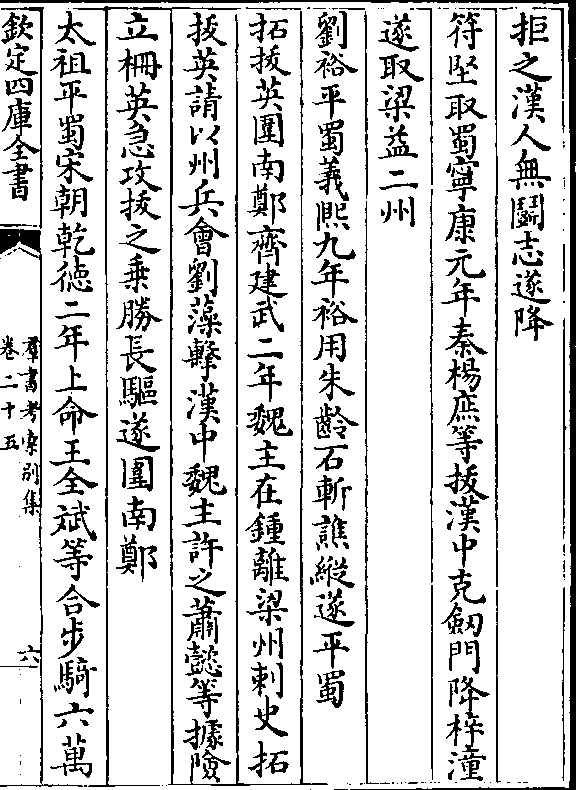 拒之漢人無鬭志遂降
符堅取蜀寧康元年秦楊庶等拔漢中克劔門降梓潼
遂取梁益二州
劉裕平蜀義熙九年裕用朱齡石斬譙縱遂平蜀
拓拔英圍南鄭齊建武二年魏主在鍾離梁州刺史拓
拔英請以州兵會劉藻擊漢中魏主許之蕭懿等據險
立柵英急攻拔之乗勝長驅遂圍南鄭
太祖平蜀宋朝乾徳二年上命王全斌等合步騎六萬
欽定四庫全書
羣書考索别集
卷二十五
六